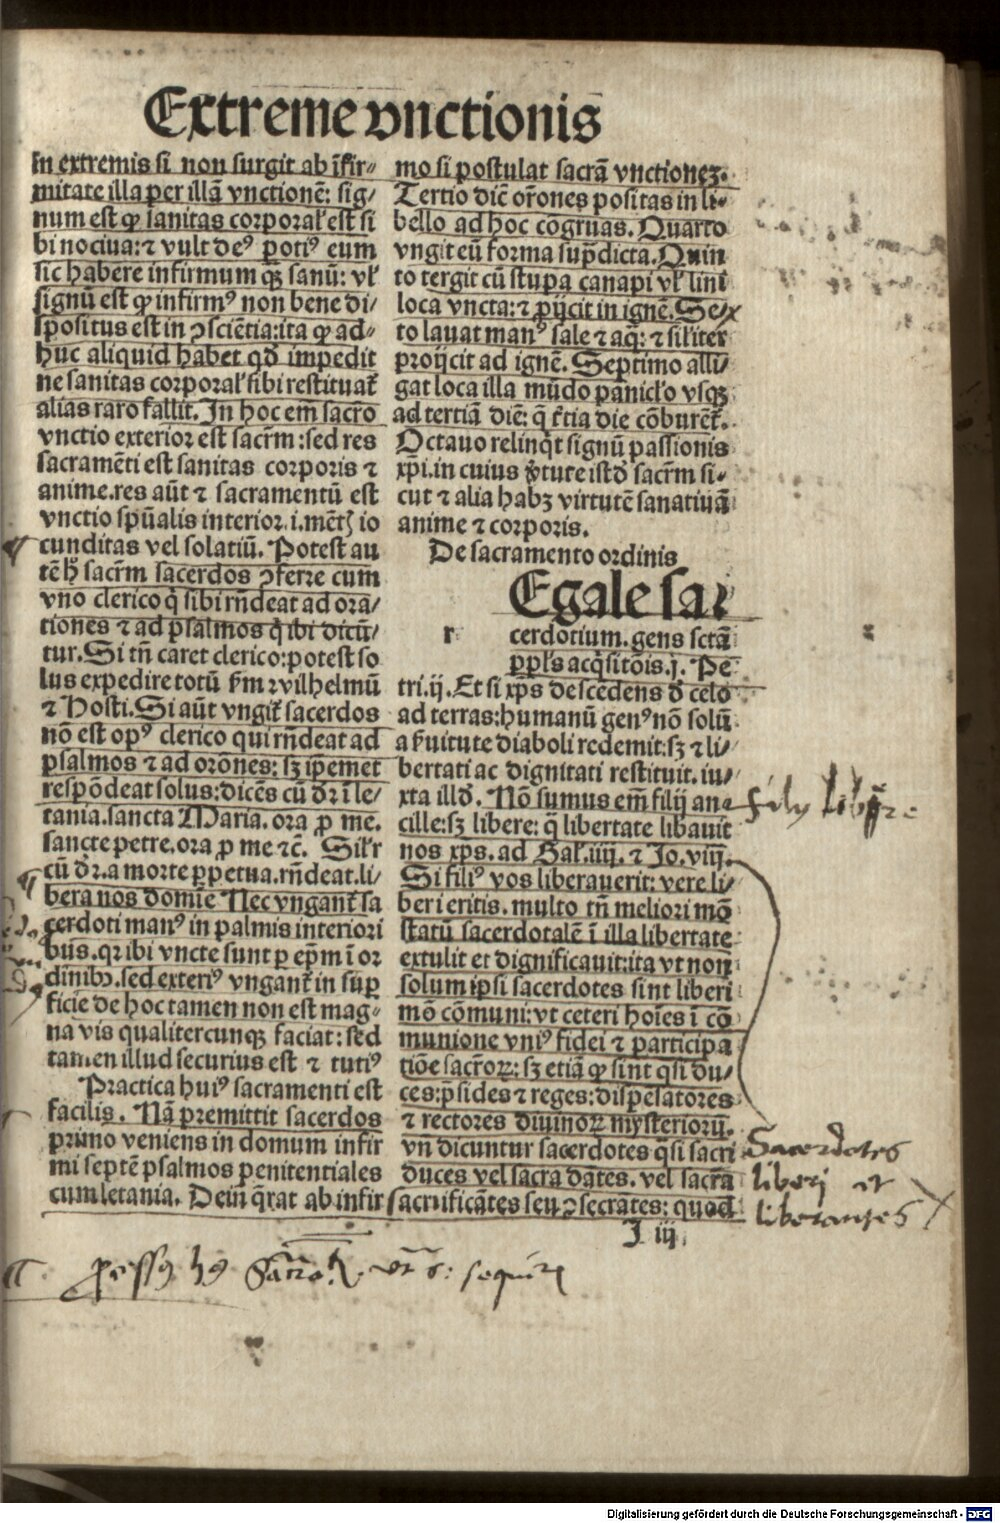 Extreme vnctionis
In extremis si non surgit ab ĩfir⸗
mitate illa per illã vnctionẽ: sig⸗
num est ꝙ sanitas corporal' est si
bi nociua: ⁊ vult deꝰ potiꝰ eum
sic habere infirmum qꝫ sanũ: vl'
signũ est ꝙ infirmꝰ non bene di⸗
spositus est in ꝯsciẽtia: ita ꝙ ad⸗
huc aliquid habet qd̃ impedit
ne sanitas corporal' sibi restituat̃
alias raro fallit. In hoc em̃ sacr̃o
vnctio exterior est sacr̃m: sed res
sacramẽti est sanitas corporis ⁊
anime. res aũt ⁊ sacramentũ est
vnctio sp̃ualis interior. i. mẽt߬ io
cunditas vel solatiũ. Potest au
tẽ h̃ sacr̃m sacerdos ꝯferre cum
vno clerico q̃ sibi rñdeat ad ora⸗
tiones ⁊ ad psalmos q̃ ibi dicũ⸗
tur. Si tñ caret clerico: potest so
lus expedire totũ ẜm wilhelmũ
⁊ Hosti. Si aũt vngit̃ sacerdos
nõ est opꝰ clerico qui rñdeat ad
psalmos ⁊ ad orõnes: sꝫ ip̃emet
respõdeat solus: dicẽs cũ dr̃ ĩ le⸗
tania. sancta Maria. ora ꝓ me.
sancte petre. ora ꝓ me ⁊c̃. Sil'r
cũ dr̃. a morte ꝑpetua. rñdeat. li⸗
bera nos domĩe Nec vngant̃ sa
cerdoti manꝰ in palmis interiori
bus. qr ibi vncte sunt ꝑ ep̃m ĩ or
dĩnibꝰ. sed exteriꝰ vngant̃ in suꝑ
ficie de hoc tamen non est mag⸗
na vis qualitercunqꝫ faciat: sed
tamen illud securius est ⁊ tutiꝰ
Practica huiꝰ sacramenti est
facilis. Nã premittit sacerdos
primo veniens in domum infir
mi septẽ psalmos penitentiales
cum letania. Dein̄ q̃rat ab infir
mo si postulat sacrã vnctioneꝫ.
Tertio dic̃ or̃ones positas in li⸗
bello ad hoc cõgruas. Quarto
vngit eũ forma sup̃dicta. Quin
to tergit cũ stupa canapi vl' lini
loca vncta: ⁊ ꝓijcit in ignẽ. Sex
to lauat manꝰ sale ⁊ aq̃: ⁊ sil'iter
proijcit ad ignẽ. Septimo alli⸗
gat loca illa mũdo panicl'o vsqꝫ
ad tertiã diẽ: q̃ t̃tia die cõburẽt̃.
Octauo relinq̃t signũ passionis
xp̃i. in cuius ṽtute istd̃ sacr̃m si⸗
cut ⁊ alia habꝫ virtutẽ sanatiuã
anime ⁊ corporis.
De sacramento ordinis
Egale sa⸗
r cerdotium. gens sctã
ppl's acq̃sitõis. j. Pe
tri. ij. Et si xp̃s descẽdens d̃ celo
ad terras: humanũ genꝰ nõ solũ
a ẜuitute diaboli redemit: sꝫ ⁊ li⸗
bertati ac dignitati restituit. iu⸗
xta illd̃. Nõ sumus em̃ filij an⸗
cille: sꝫ libere: q̃ libertate libauit
nos xp̃s. ad Gal'. iiij. ⁊ Jo. viij.
Si filiꝰ vos liberauerit: vere li⸗
beri eritis. multo tñ meliori mõ
statũ sacerdotalẽ ĩ illa libertate
extulit et dignificauit: ita vt non
solum ip̃i sacerdotes sint liberi
mõ cõmuni: vt ceteri hoĩes ĩ cõ
munione vniꝰ fidei ⁊ participa
tiõe sacr̃oꝝ: sꝫ etiã ꝙ sint q̃si du⸗
ces: p̃sides ⁊ reges: dispẽsatores
⁊ rectores diuinoꝝ mysteriorũ.
vñ dicuntur sacerdotes q̃si sacri
duces vel sacra dãtes. vel sacra
sacrificãtes seu ꝯsecrãtes: quod
J iij
filij libere
Sacerdotes
liberi et
liberantes